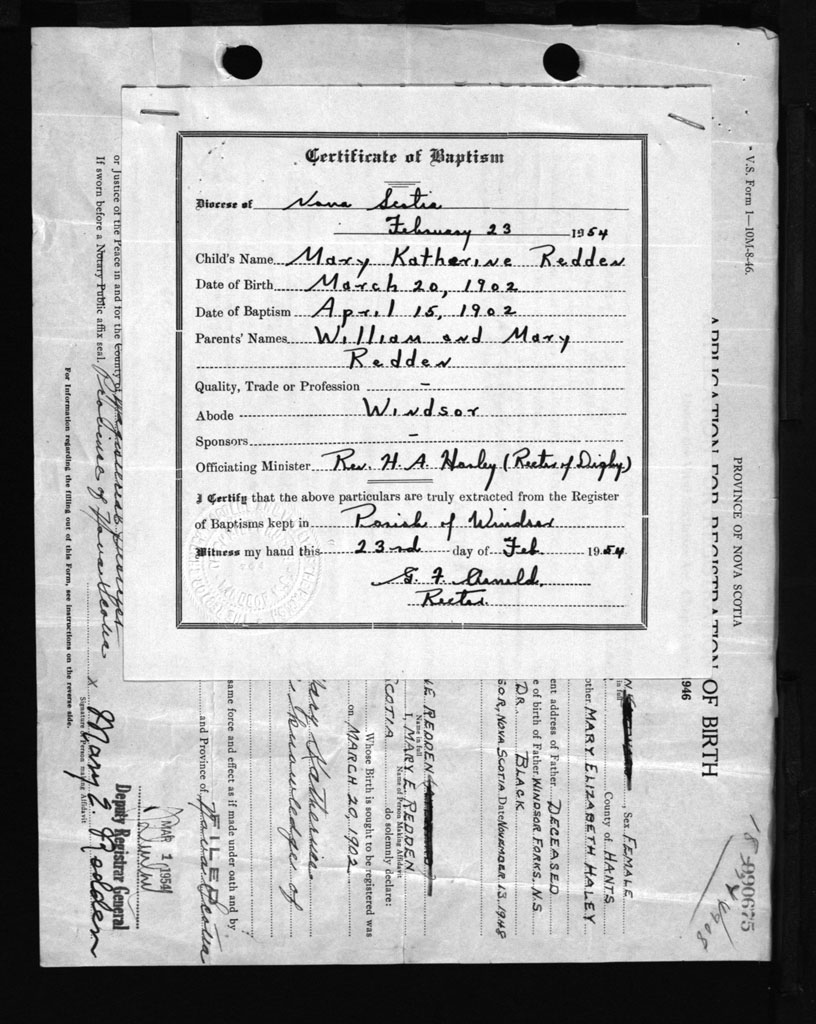 Certificate of Baptism
Diocese of Nova Scotia
February 23 1954
Child's Name Mary Katherine Redden
Date of Birth March 20, 1902
Date of Baptism April 15, 1902
Parents' Names William and Mary
Redden
Quality, Trade or Profession –
Abode Windsor
Sponsors –
Officiating Minister Rev. H. A. Harley (Rector of Digby)
I Certify that the above particulars are truly extracted from the Register
of Baptisms kept in Parish of Windsor
Witness my hand this 23rd day of Feb 1954
Rector.
V.S. Form 1—10M-8-46.
PROVINCE OF NOVA SCOTIA
APPLICATION FOR REGISTRATION OF BIRTH
1946
990675
1908
, Sex FEMALE
in full
County of HANTS
other MARY ELIZABETH HALEY
ent address of Father DECEASED
e of birth of Father WINDSOR FORKS, N.S.
DR. BLACK
SOR, NOVA SCOTIA Date NOVEMBER 13, 1948
NE REDDEN
Name in full
I, MARY E. REDDEN
Name of Person Making Affidavit
SCOTIA do solemnly declare:
Whose Birth is sought to be registered was
on MARCH 20, 1902
Mary Katherine
knowledge of
same force and effect as if made under oath and by
FILED
and Province of Nova Scotia
MAR 1 1954
Deputy Registrar General
X Mary E. Redden
Signature of Person making Affidavit
or Justice of the Peace in and for the County of
If sworn before a Notary Public affix seal. Province of Nova Scotia
For information regarding the filling out of this Form, see instructions on the reverse side.